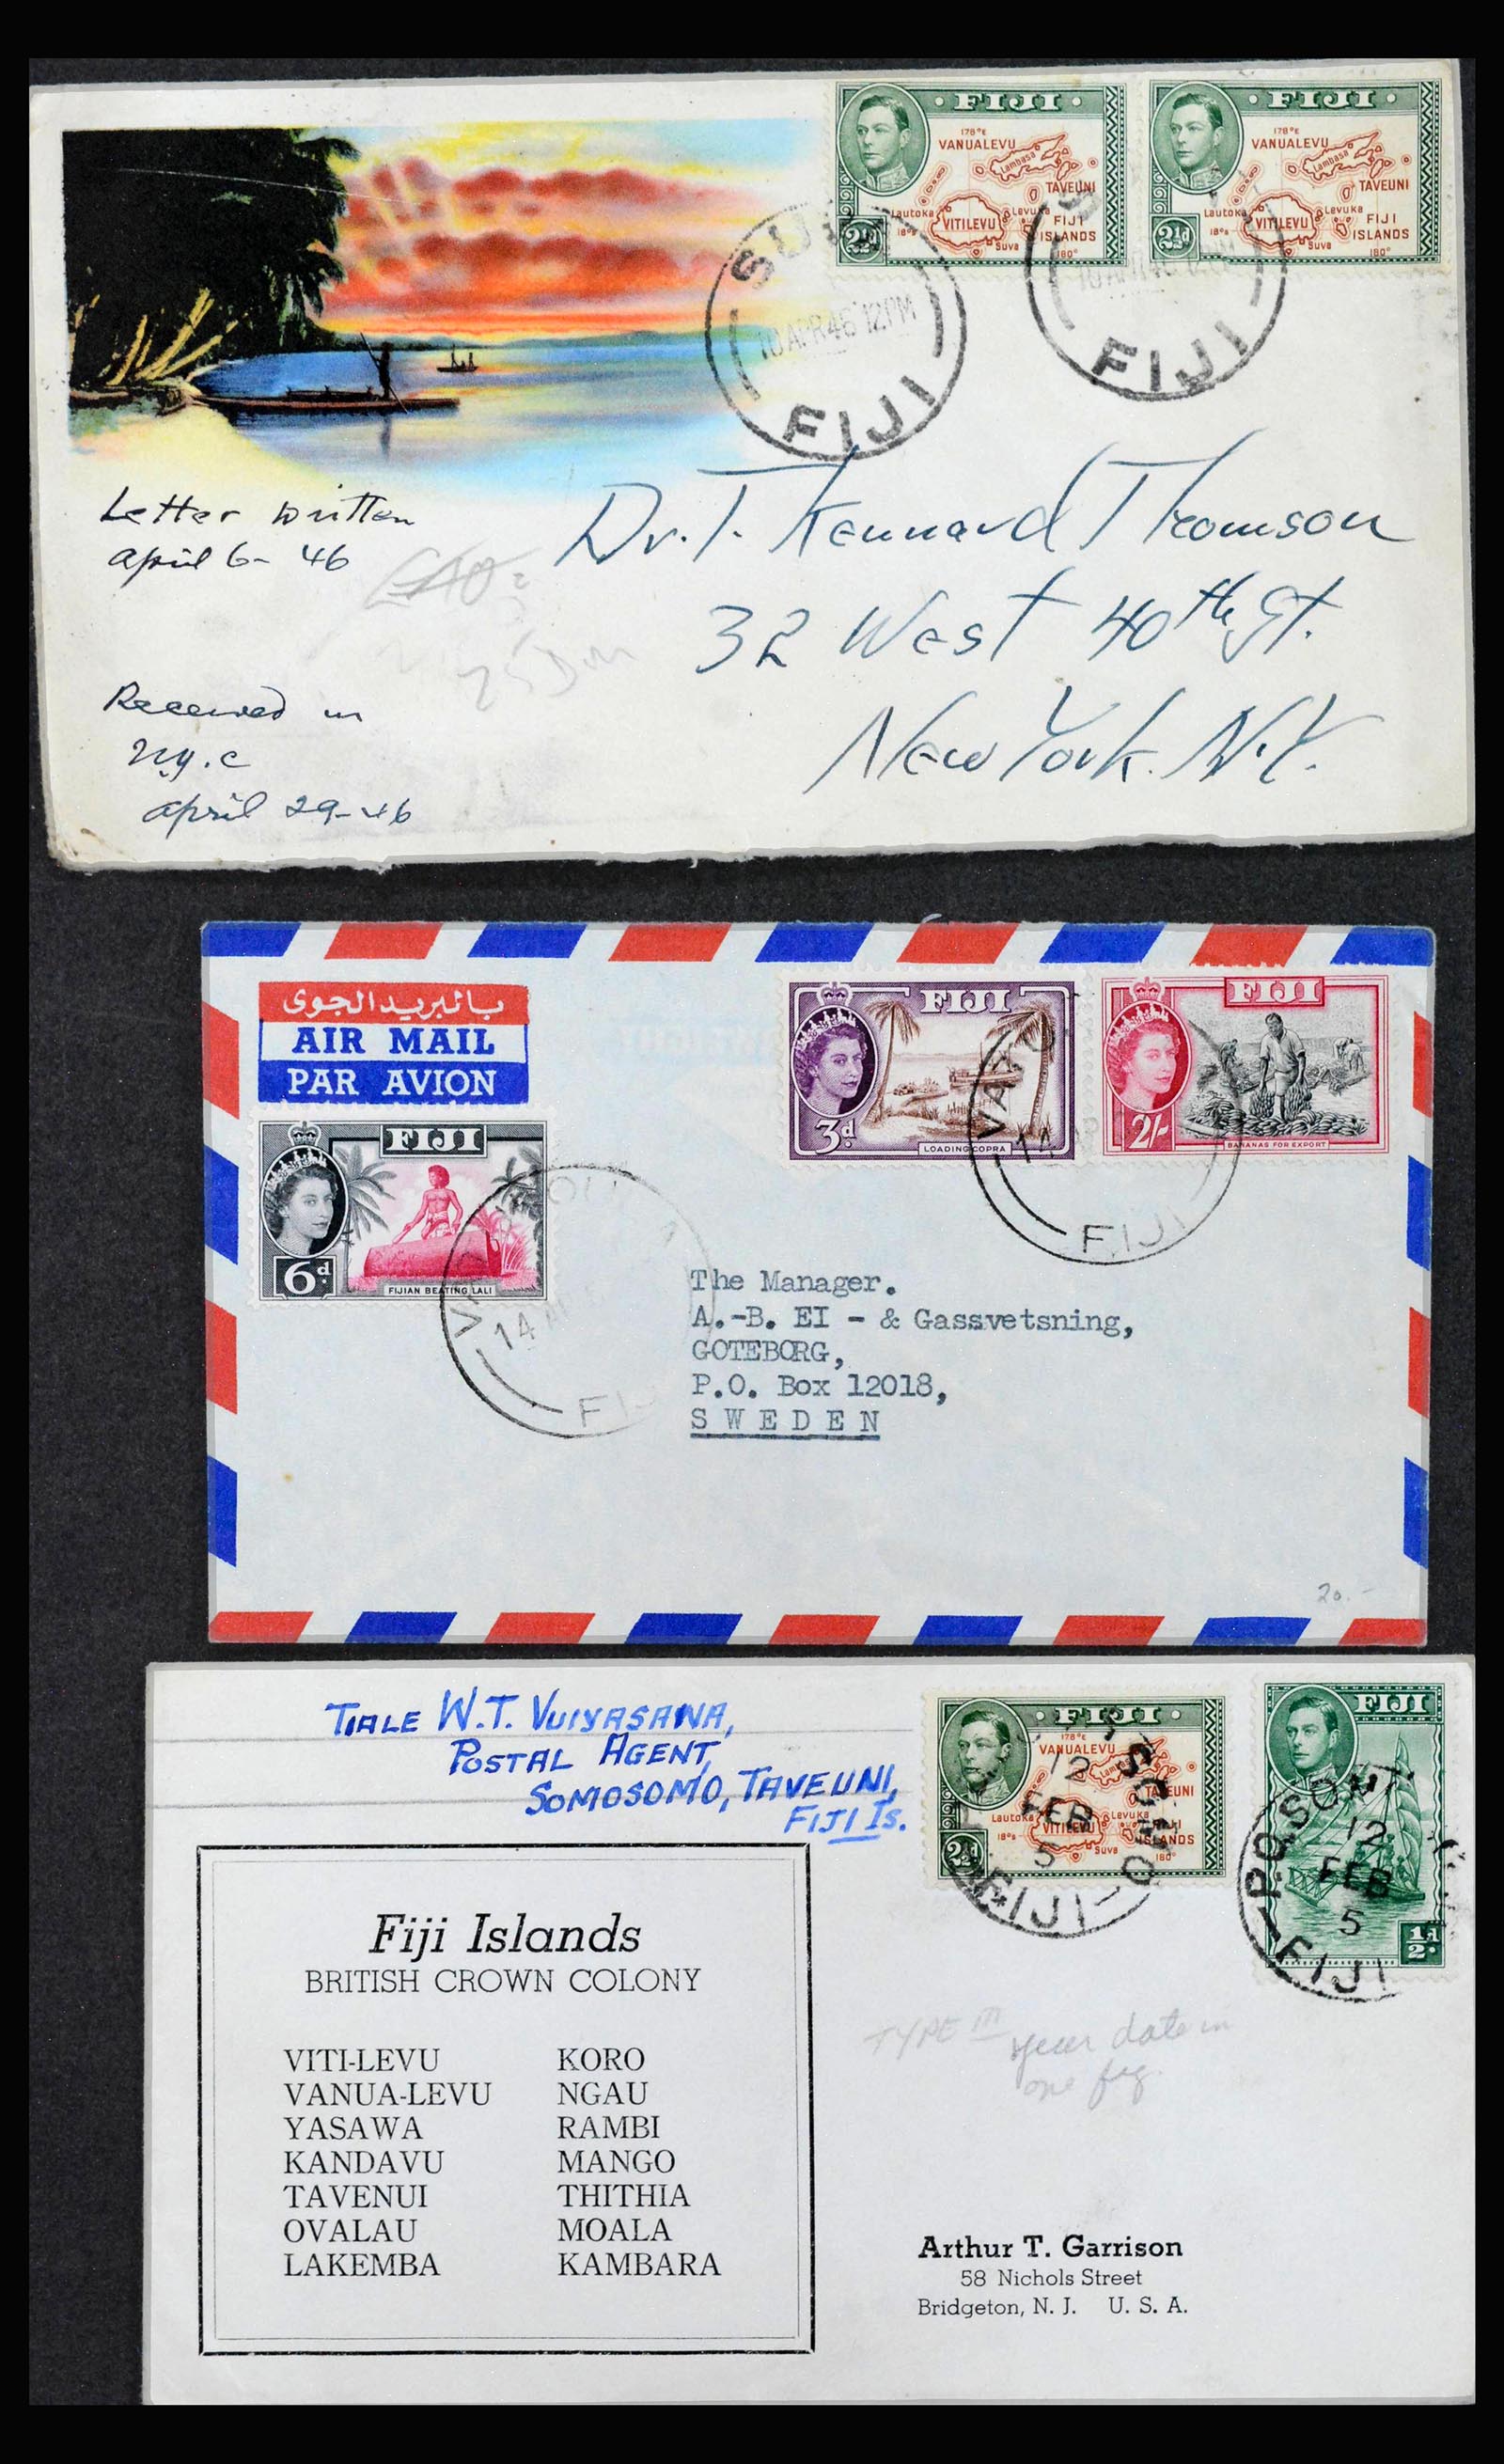 · FIJI ·
178°E
VANUALEVU
Lambasa
TAVEUNI
Lautoka
Levuka
VITILEVU
FIJI
ISLANDS
18°S
Suva
180°
2½d
· FIJI ·
178°E
VANUALEVU
Lambasa
TAVEUNI
Lautoka
Levuka
VITILEVU
FIJI
ISLANDS
18°S
Suva
180°
2½d
SUVA
10 APR 46 12 PM
FIJI
FIJI
Letter written
april 6- 46
Dr. T. Kennard Thomson
32 West 40th St.
New York. N.Y.
Received in
N.Y.C
april 29-46
بالبريد الجوى
AIR MAIL
PAR AVION
FIJI
6d
FIJIAN BEATING LALI
14
FIJI
FIJI
3d
LOADING COPRA
FIJI
2/-
BANANAS FOR EXPORT
14
FIJI
The Manager.
A.-B. EI - & Gassvetsning,
GOTEBORG,
P.O. Box 12018,
SWEDEN
20.-
TIALE W.T. VUIYASAWA,
POSTAL AGENT,
SOMOSOMO, TAVEUNI,
FIJI IS.
· FIJI ·
178°E
VANUALEVU
Lambasa
TAVEUNI
Lautoka
Levuka
VITILEVU
FIJI
ISLANDS
18°S
Suva
180°
2½d
12
FEB
5
FIJI
FIJI
½d
P.O. SOMO
12
FEB
5
FIJI
Fiji Islands
BRITISH CROWN COLONY
VITI-LEVU KORO
VANUA-LEVU NGAU
YASAWA RAMBI
KANDAVU MANGO
TAVENUI THITHIA
OVALAU MOALA
LAKEMBA KAMBARA
TYPE III year date in
one fig.
Arthur T. Garrison
58 Nichols Street
Bridgeton, N. J. U. S. A.